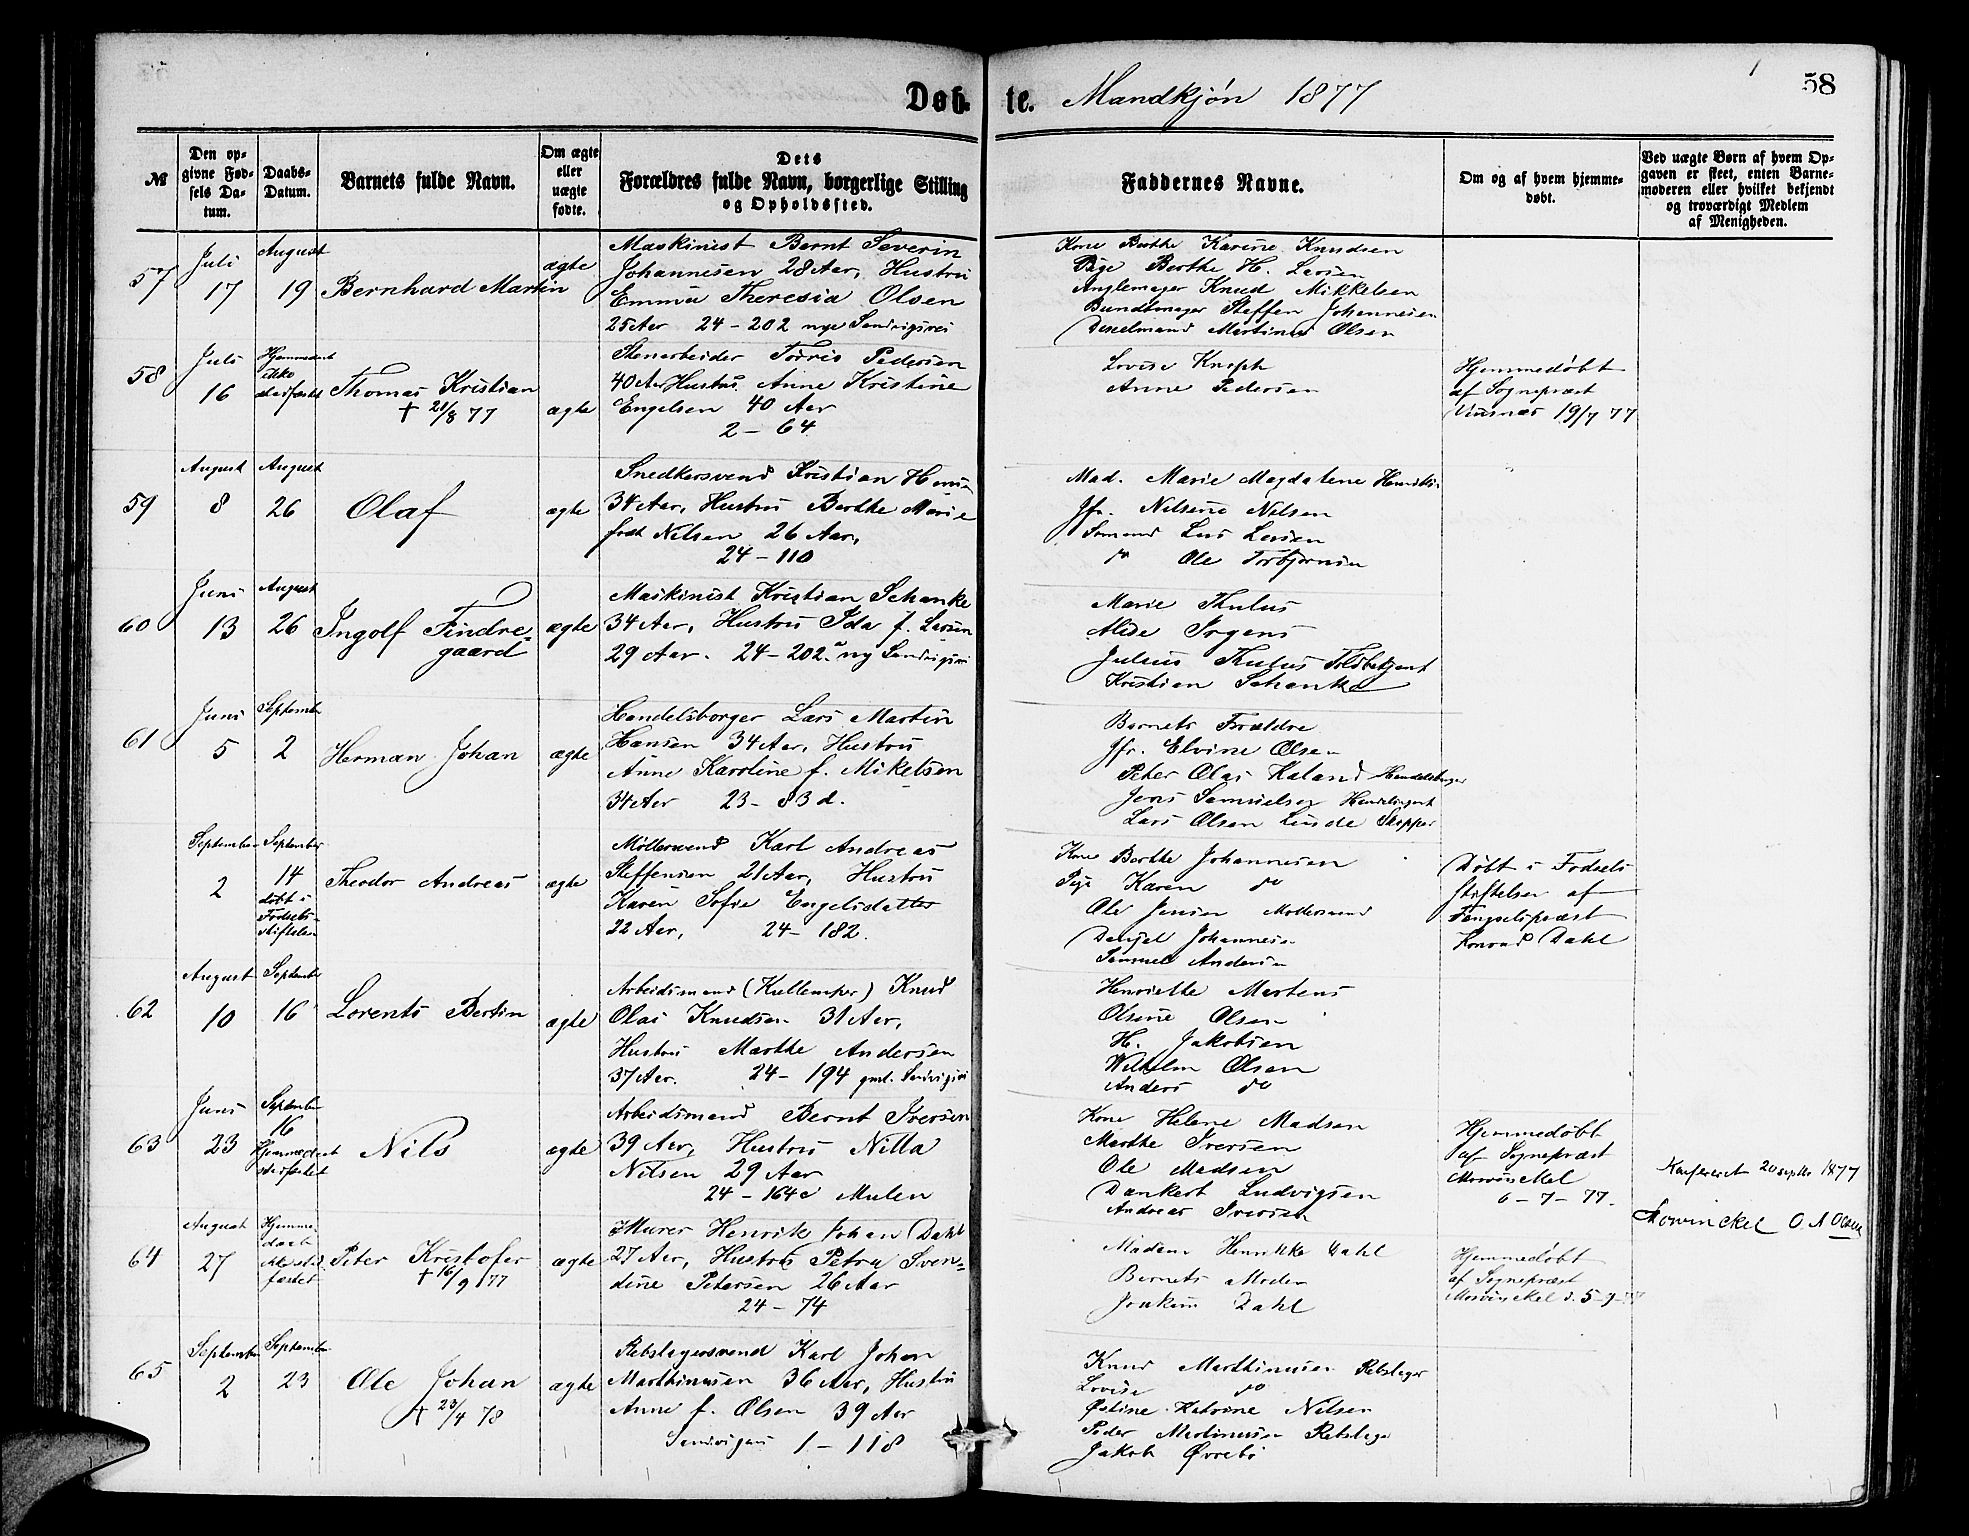 Døb- te. Mandkjøn 1877
58
№
Den op-
givne Fød-
sels Da-
tum.
Daabs-
Datum.
Barnets fulde Navn.
Om ægte
eller
uægte
fødte.
Dets
Forældres fulde Navn, borgerlige Stilling
og Opholdssted.
Faddernes Navne.
Om og af hvem hjemme-
døbt.
Ved uægte Børn af hvem Op-
gaven er skeet, enten Barne-
moderen eller hvilket bekjendt
og troværdigt Medlem
af Menigheden.
57
Juli
17
August
19
Bernhard Martin
ægte
Maskinist Bernt Severin
Johannesen 28 Aar, Hustru
Emma Theresia Olsen
25 Aar 24-202 nye Sandvigsvei
Kone Berthe Karine Knudsen
Pige Berthe H. Larsen
Knud Mikkelsen
Bundtmager Steffen Johannesen
Martinus Olsen
58
Juli
16
Hjemmedøbt
ikke
stadfæstet
Thomas Kristian
† 21/8 77
ægte
Stenarbeider Torris Pedersen
40 Aar Hustru Anne Kristine
Engelsen 40 Aar
2-64
Lovise Knaph
Anne Pedersen
Hjemmedøbt
af Sogneprest
19/7 77
59
August
8
August
26
Olaf
ægte
Snedkersvend Kristian
34 Aar, Hustru Berthe Marie
født Nilsen 26 Aar,
24-110
Mad. Marie Magdalene
Jfr. Nilsine Nilsen
Sømand Lars Larsen
do Ole Torbjørnsen
60
Juni
13
August
26
Ingolf Findre-
gaard
ægte
Maskinist Kristian Schanke
34 Aar, Hustru Ida f. Larsen
29 Aar. 24-202. ny Sandvigsvei
Marie Thulus
Alide Irgens
Julius Thulus Toldbetjent
Kristian Schanke
61
Juni
5
September
2
Herman Johan
ægte
Handelsborger Lars Martin
Hansen 34 Aar, Hustru
Anne Karoline f. Mikelsen
34 Aar 23-83 d.
Barnets Forældre
Jfr. Elvine Olsen
Peter Olai Kaland Handelsborger
Jens Samuelsen
Lars Olsen Linde Skipper
September
2
September
14
døbt i
Fødsels-
stiftelsen
Theodor Andreas
ægte
Møllersvend Karl Andreas
Steffensen 21 Aar, Hustru
Karen Sofie Engelsdatter
22 Aar, 24-182.
Kone Berthe Johannesen
Pige Karen do
Ole Jensen Møllersvend
Danjel Johannesen
Samuel Andersen
Døbt i Fødsels
stiftelsen af
Fængselsprest
Konrad Dahl
62
August
10
September
16
Lorents Bertin
ægte
Arbeidsmand (Kullemper) Knud
Olai Knudsen 31 Aar,
Hustru Marthe Andersen
37 Aar. 24-194 gml. Sandvigsvei
Henriette Martens
Olsine Olsen
H. Jakobsen
Wilhelm Olsen
Anders do
63
Juni
23
September
16
Hjemmedøbt
stadfæstet
Nils
ægte
Arbeidsmand Bernt Iversen
39 Aar, Hustru Nilla
Nilsen 29 Aar
24-164c Mulen
Kone Helene Madsen
Marthe Iversen
Ole Madsen
Dankert Ludvigsen
Andreas Iversen
Hjemmedøbt
af Sogneprest
Mowinckel
6-7-77.
Konfereret 20 septbr 1877
Mowinckel O. A Olsen
64
August
27
Hjemme
døbt
ikke stad
fæstet
Peter Kristofer
† 16/9 77
ægte
Murer Henrik Johan Dahl
27 Aar, Hustru Petra Sven-
dine Petersen 26 Aar
24-74
Madam Henrikke Dahl
Barnets Moder
Joakim Dahl
Hjemmedøbt
af Sogneprest
Mowinckel d. 5-9-77
65
September
2
September
23
Ole Johan
† 23/4 78
ægte
Rebslagersvend Karl Johan
Marthinusen 36 Aar, Hustru
Anne f. Olsen 39 Aar
1-118
Knud Marthinusen Rebslager
Lovise do
Østine Katrine Nilsen
Peder Martinusen Rebslager
Jakob Øvrebø